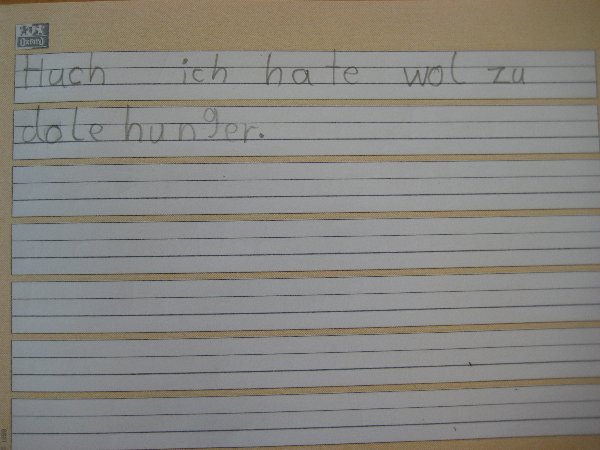 Huch ich hate wol zu
dole hunger.